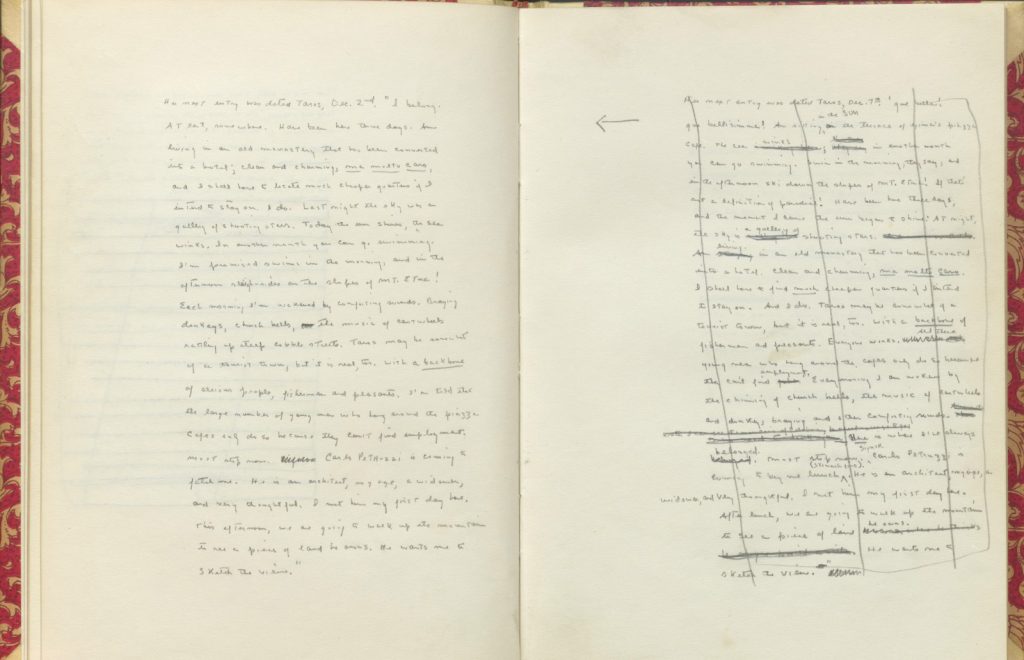 Her next entry was dated Taros, Dec. 2nd. "I belong.
At last, somewhere. Have been here three days. Am
living in an old monastery that has been converted
into a hotel; clean and charming, ma molto caro,
and I shall have to locate much cheaper quarters if I
intend to stay on. I do. Last night the sky was a
gallery of shooting stars. Today the sun shines, the sea
winks. In another month you can go swimming.
I'm promised swims in the morning, and in the
afternoon on the slopes of Mt. Etna!
Each morning I'm wakened by comforting sounds. Braying
donkeys, church bells, the music of cartwheels
rattling up steep cobble streets. Taros may be somewhat
of a tourist town, but it is real, too. With a backbone
of serious people, fishermen and peasants. I'm told that
the large number of young men who hang around the piazza
cafes only do so because they can't find employment.
Must stop now. Carlo Petruzzi is coming to
fetch me. He is an architect, my age, a widower,
and very thoughtful. I met him my first day here.
This afternoon, we are going to walk up the mountain
to see a piece of land he owns. He wants me to
sketch the view."
←
Her next entry was dated Taros, Dec. 7th. "Que bella!
que bellissima! Am sitting in the sun the terrace of piazza
cafe. The sea winks; in another month
you can go swimming. Swim in the morning, they say, and
in the afternoon ski down the slopes of Mt. Etna! If that's
not a definition of paradise! Have been here three days,
and the moment I came the sun began to shine! At night,
the sky is a gallery of shooting stars.
Am living in an old monastery that has been converted
into a hotel. Clean and charming, ma molto caro.
I shall have to find much cheaper quarters if I intend
to stay on. And I do. Taros may be somewhat of a
tourist town, but it is real, too. With a backbone of
fishermen and peasants. Everyone works. And those
young men who hang around the cafes only do so because
they can't find employment. Every morning I am woken by
the chiming of church bells, the music of cartwheels
and donkeys braying and other comforting sounds.
Here is where I've always
belonged. Must stop now. (Siamo pronti). Signor Carlo Petruzzi is
coming to buy me lunch. He is an architect my age, a
widower, and very thoughtful. I met him my first day here.
After lunch, we are going to walk up the mountain
to see a piece of land he owns.
He wants me to
sketch the view."